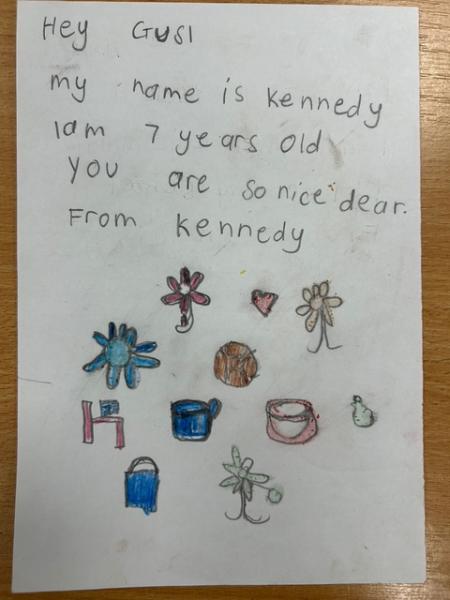 Hey GUSI
my name is kennedy
Iam 7 years old
you are so nice dear.
From kennedy